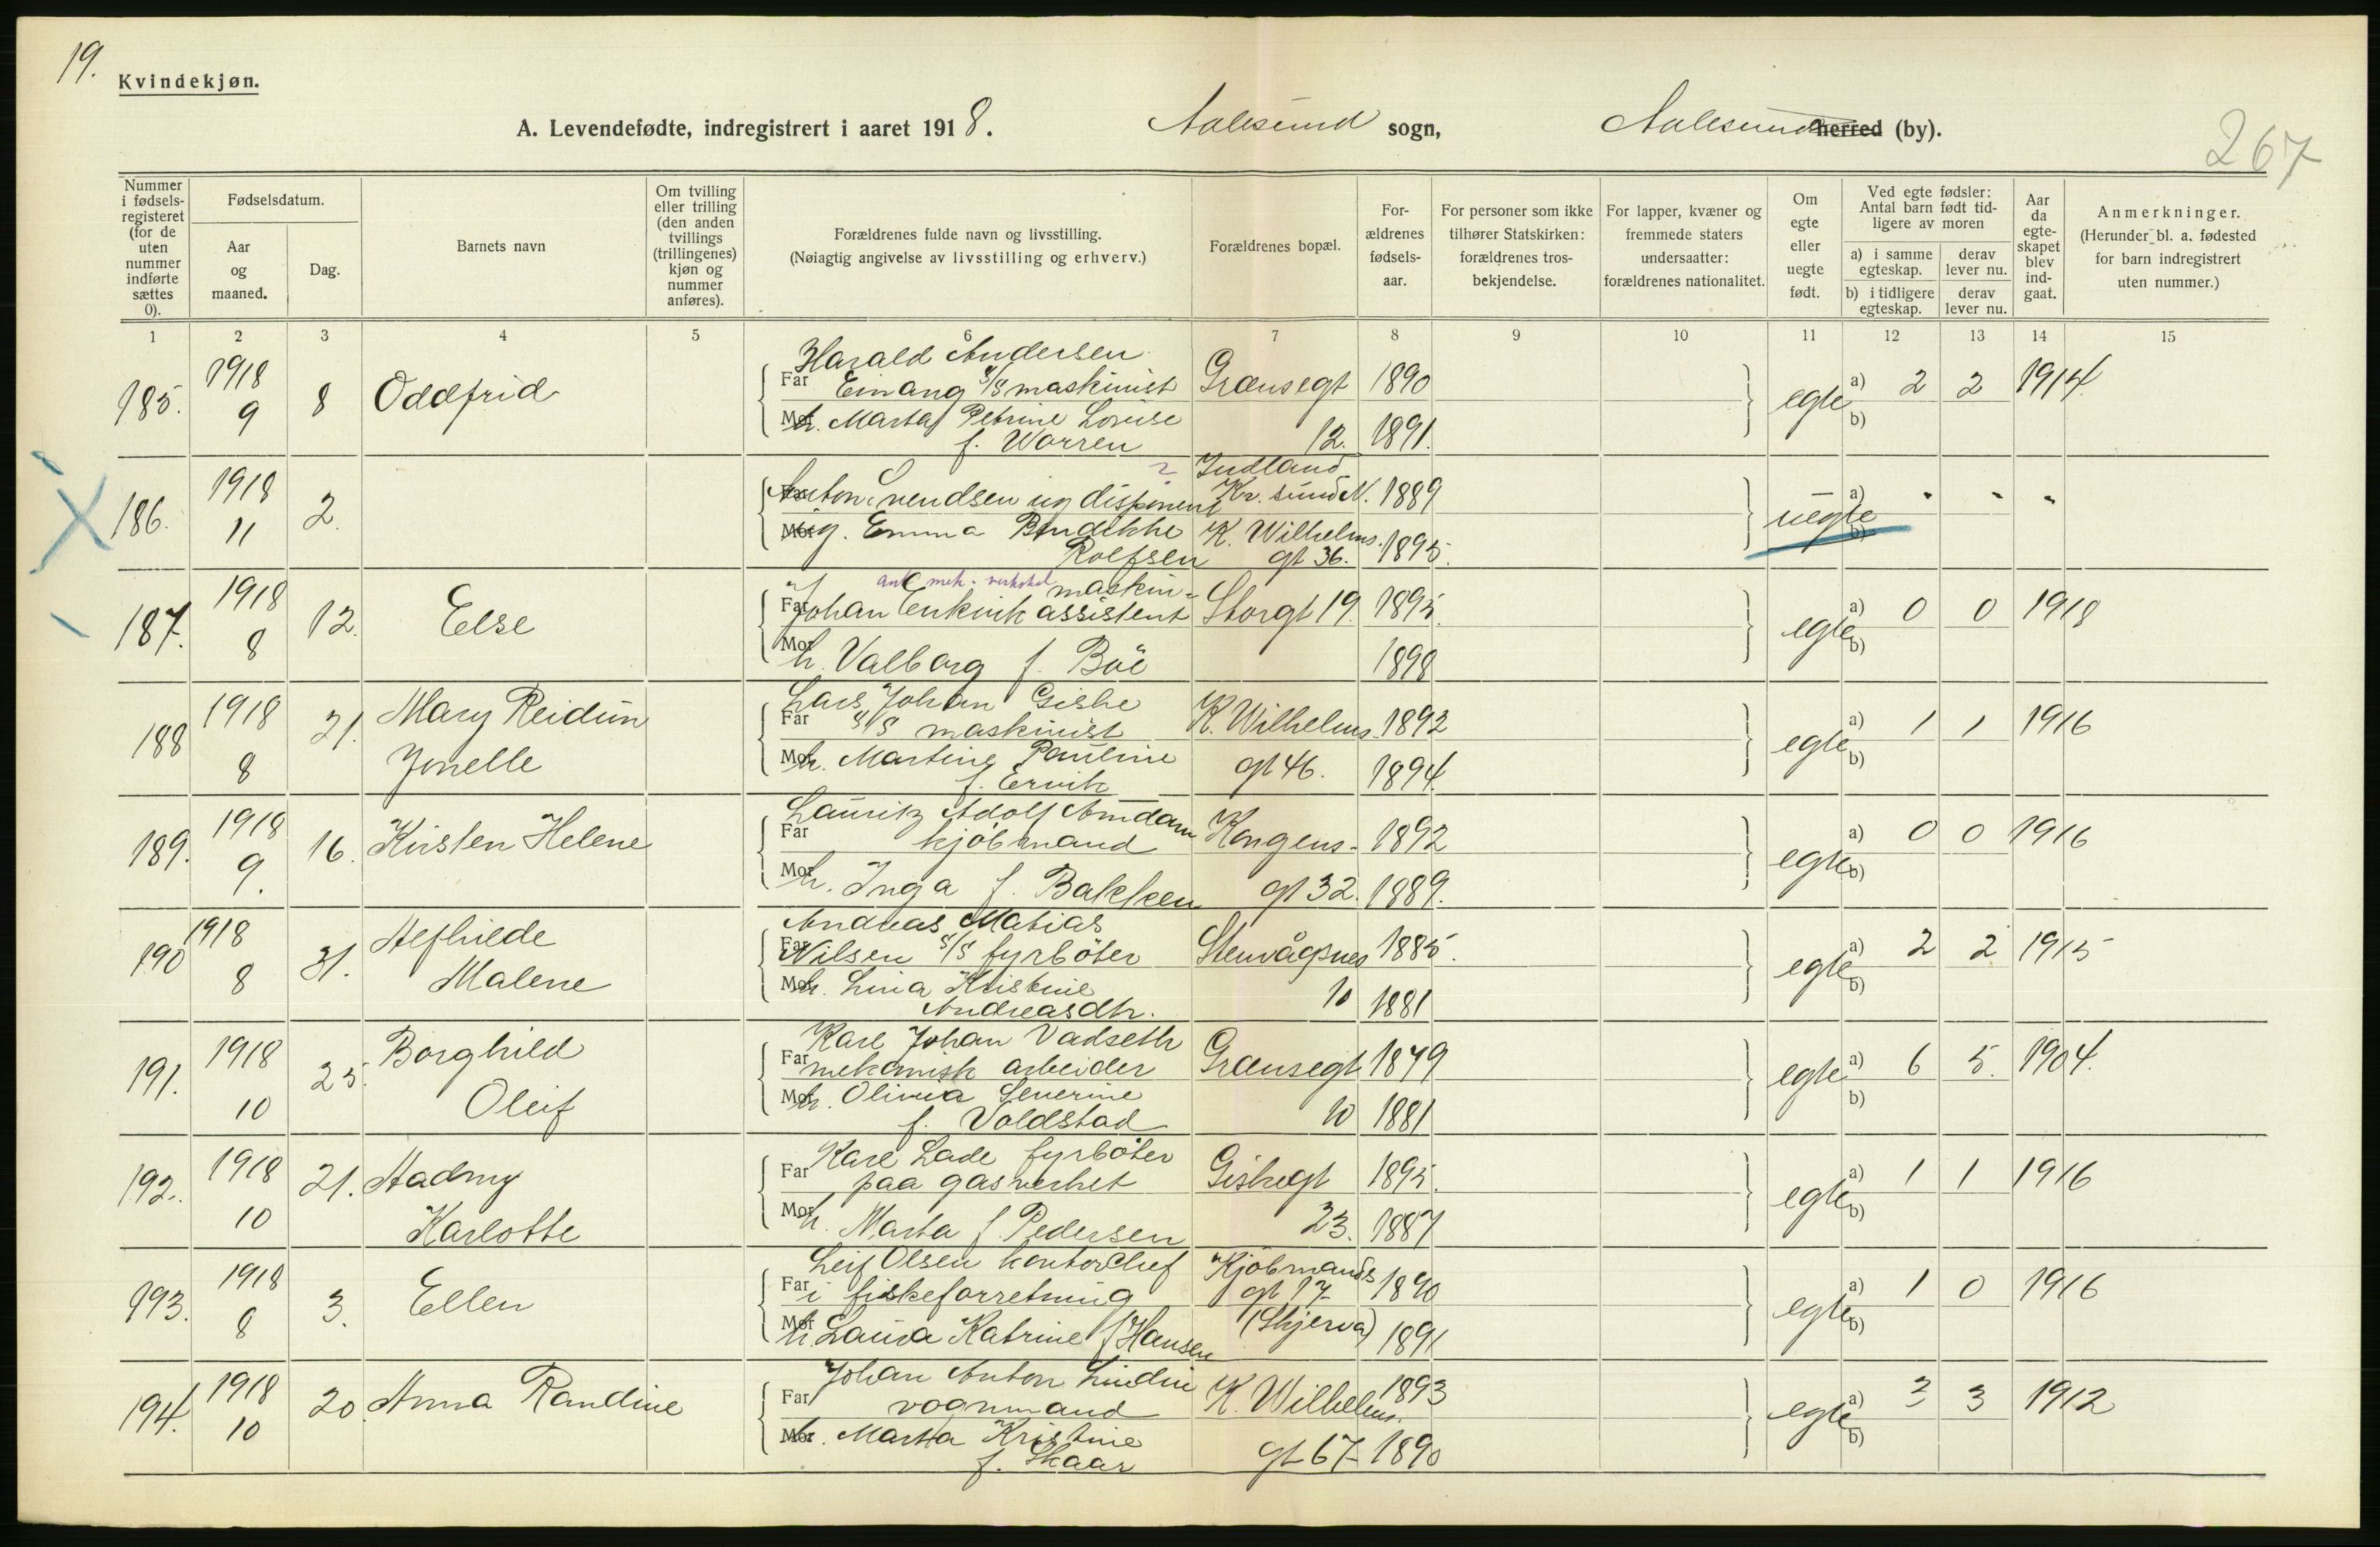 19.
Kvindekjøn.
A. Levendefødte, indregistrert i aaret 1918. Aalesund sogn, Aalesund herred (by).
267
Nummer i fødsels-registeret (for de uten nummer indførte sættes 0).
Fødselsdatum.
Aar og maaned.
Dag.
Barnets navn
Om tvilling eller trilling (den anden tvillings (trillingenes) kjøn og nummer anføres).
Forældrenes fulde navn og livsstilling.
(Nøiagtig angivelse av livsstilling og erhverv.)
Forældrenes bopæl.
For-ældrenes fødsels-aar.
For personer som ikke tilhører Statskirken: forældrenes tros-bekjendelse.
For lapper, kvæner og fremmede staters undersaatter: forældrenes nationalitet.
Om egte eller uegte født.
Ved egte fødsler: Antal barn født tid-ligere av moren
a) i samme egteskap.
derav lever nu.
b) i tidligere egteskap.
derav lever nu.
Aar da egte-skapet blev ind-gaat.
Anmerkninger.
(Herunder bl. a. fødested for barn indregistrert uten nummer.)
1 2 3 4 5 6 7 8 9 10 11 12 13 14 15
185. 1918 9 8 Oddfrid
Harald Andersen
Far Einang s/s maskinist Grensegt 1890
Mor h. Marta Petrine Lovise
f. Warren 12. 1891.
egte a) 2 2 1914.
b)
186. 1918 11 2.
Indland
Far Anton Svendsen ug disponent Kr.sund N. 1889
Mor ug. Emma Bendikke K. Wilhelms.
Rolfsen gt 36. 1895.
uegte a) " " "
b)
187. 1918 8 12. Else
maskin-
Far Johan Enkvik assistent Storgt 19. 1895.
Mor h. Valborg f. Böe 1898
egte a) 0 0 1918
b)
188 1918 8 21. Mary Reidun
Jonelle
Lars Johan Giske
Far s/s maskinist K. Wilhelms. 1892
Mor h. Martine Pauline
f. Ervik gt 46. 1894.
egte a) 1 1 1916
b)
189. 1918 9. 16. Kirsten Helene
Lauritz Adolf Amdam
Far kjöbmand Kongens- 1892
Mor h. Inga f. Bakken gt 32. 1889.
egte a) 0 0 1916
b)
190 1918 8 31. Alfhilde
Malene
Andreas Matias
Far Nilsen s/s fyrböter Stenvågsnes 1885.
Mor h. Lina Kristine
Andreasdtr. 10 1881
egte a) 2 2 1915
b)
191. 1918 10 25. Borghild
Oleif
Karl Johan Vadseth
Far mekanisk arbeider Grensegt 1879
Mor h. Olivia Severine
f. Voldstad 10 1881
egte a) 6 5. 1904.
b)
192. 1918 10 21. Hadny
Karlotte
Karl Lade fyrböter
Far paa gasverket Giskegt 1895.
Mor h. Marta f. Pedersen 23. 1887
egte a) 1 1 1916
b)
193. 1918 8 3. Ellen
Leif Olsen kontorchef Kjöbmands
Far i fiskeforretning gt 17 1890
(Skjerva)
Mor h. Laura Katrine f Hansen 1891
egte a) 1 0 1916
b)
194. 1918 10 20. Anna Randine
Johan Anton 1893
Far vognmand K. Wilhelms.
Mor h. Marta Kristine
f. Skaar gt 67 1890
egte a) 3 3 1912
b)